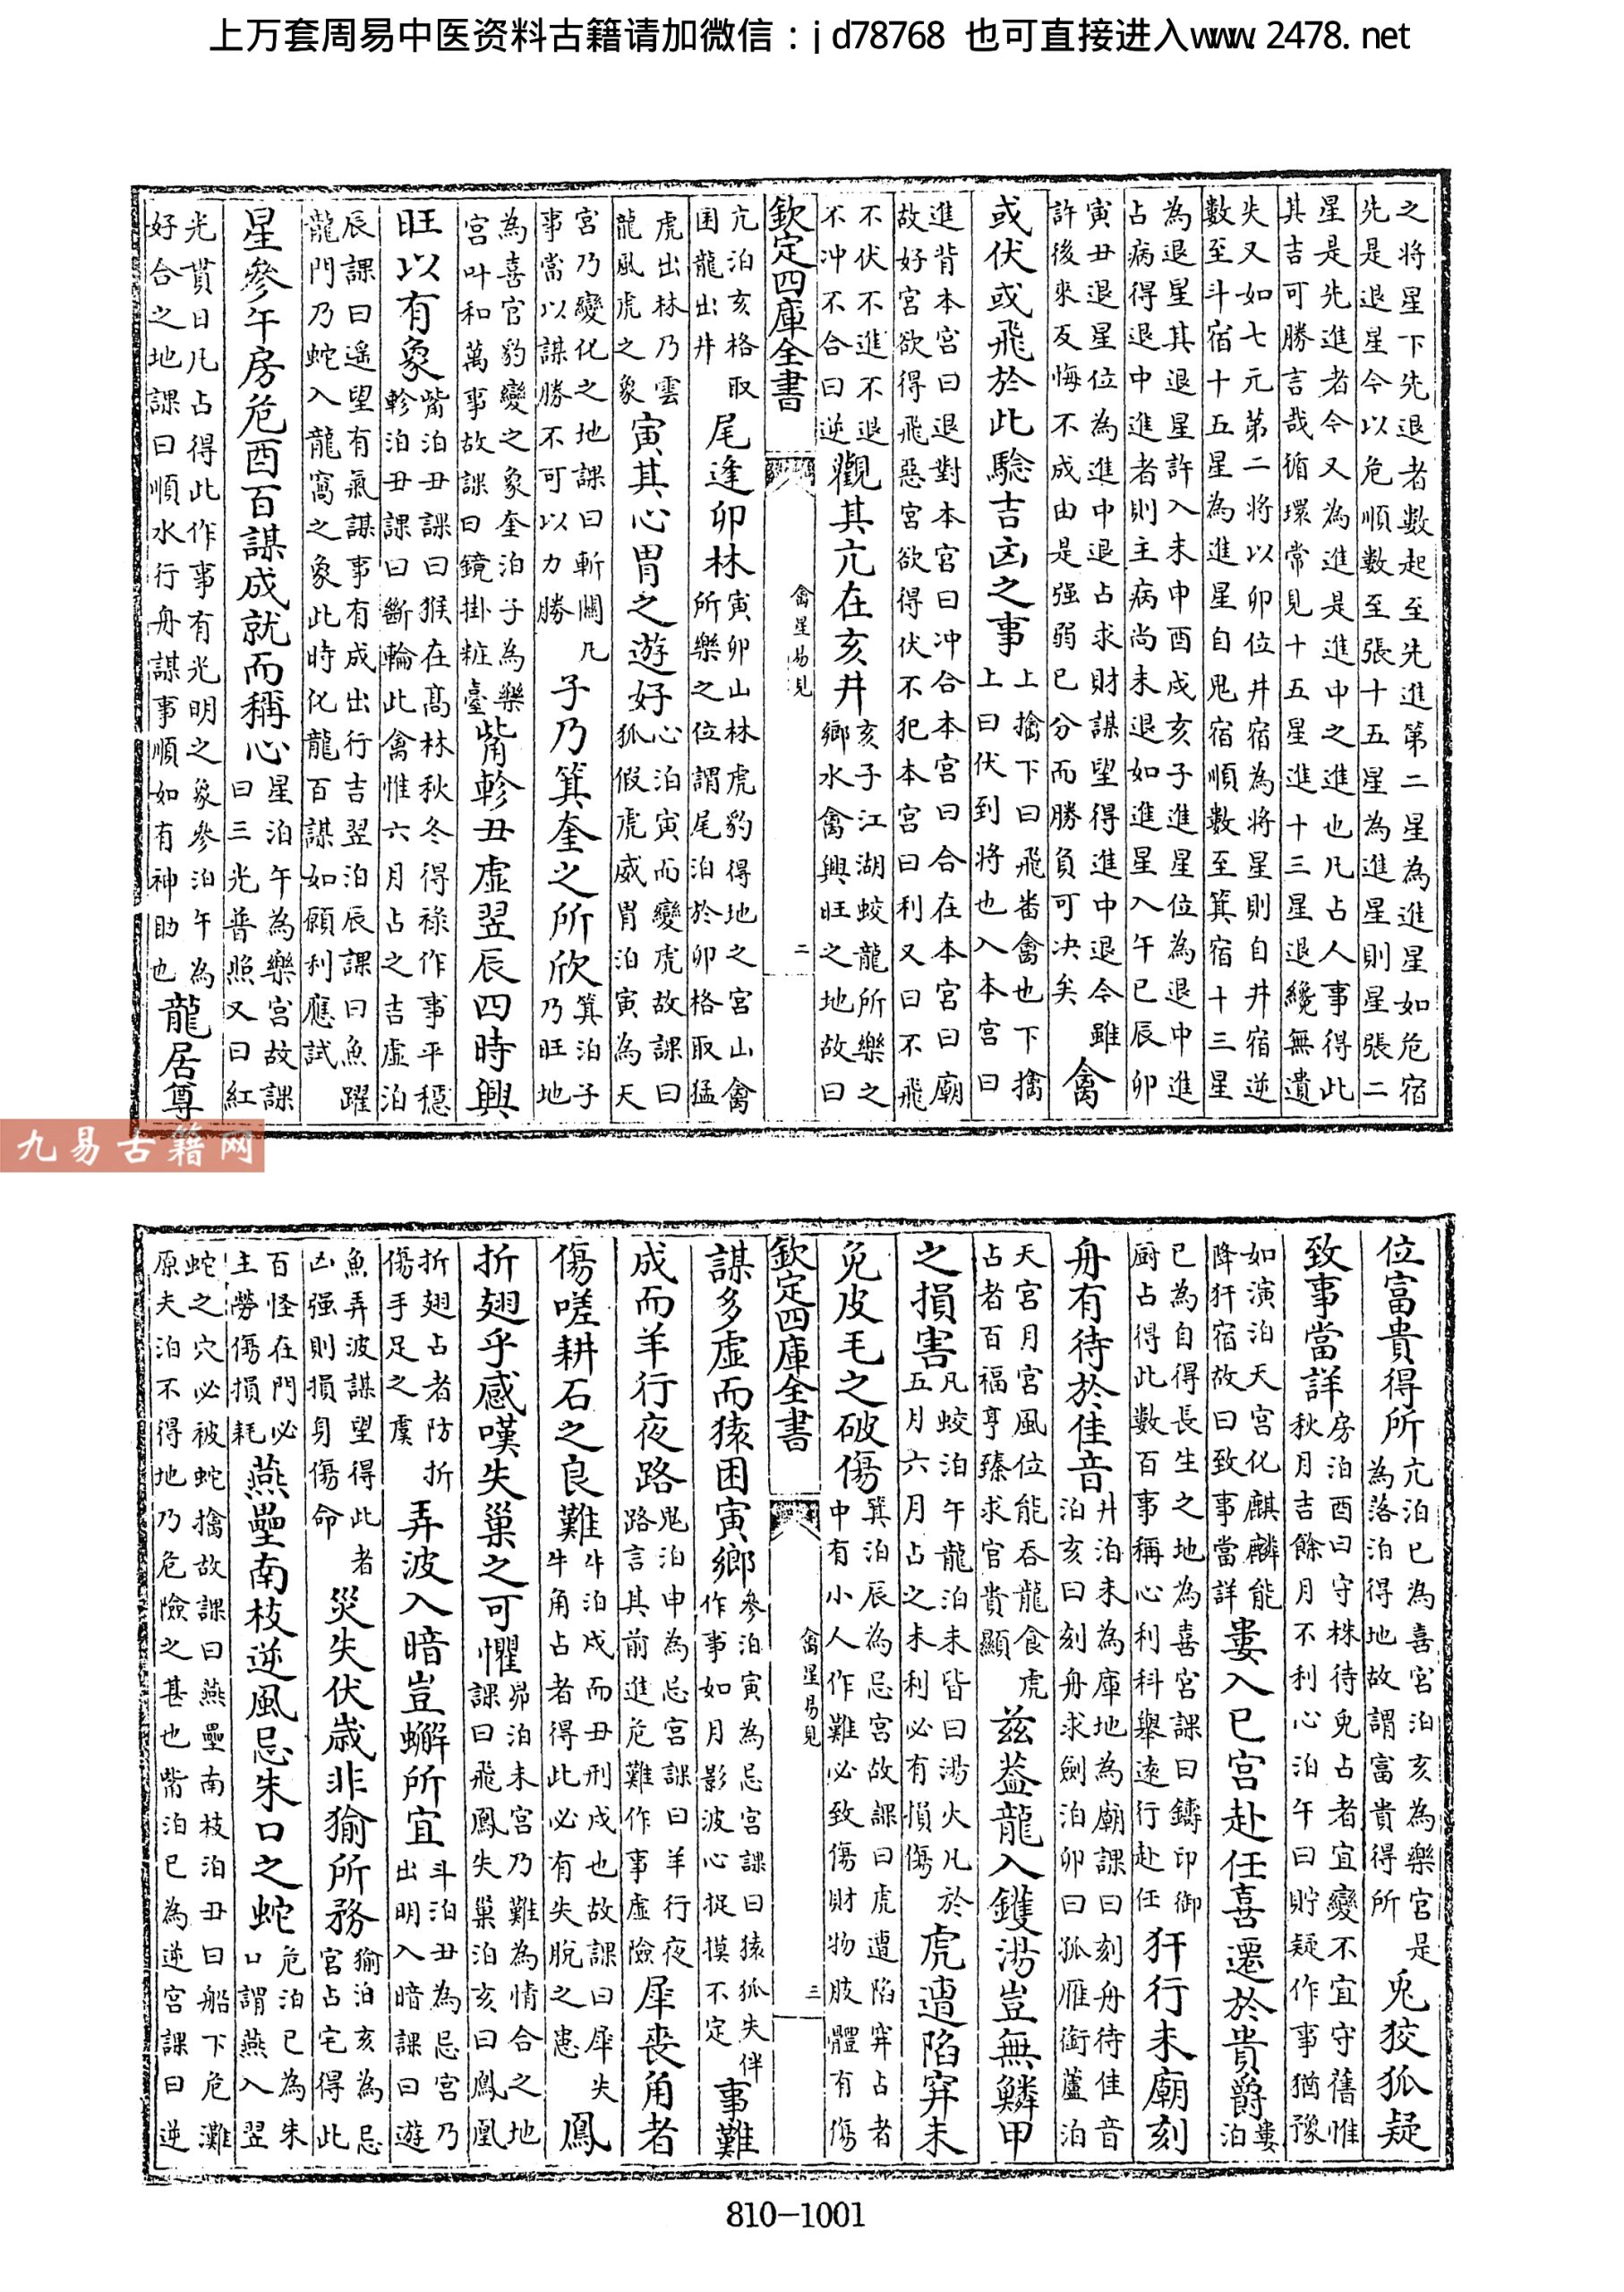 上万套周易中医资料古籍请加微信：jd78768 也可直接进入www.2478.net
之將星下先退者數起至先進第二星為進星如危宿
先是退星今以危順數至張十五星為進星則星張二
星是先進者今又為進是進中之進也凡占人事得此
其吉可勝言哉循環常見十五星進十三星退纔無遺
失又如七元第二將以卯位井宿為將星則自井宿逆
數至斗宿十五星為進星自鬼宿順數至箕宿十三星
為退星其退星許入未申酉戌亥子進星位為退中進
占病得退中進者則主病尚未退如進星入午巳辰卯
寅丑退星位為進中退占求財謀望得進中退今雖
許後來反悔不成由是强弱已分而勝負可决矣
禽
或伏或飛於此騐吉凶之事
上擒下曰飛畨禽也下擒
上曰伏到將也入本宮曰
進背本宮曰退對本宮曰冲合本宮曰合在本宮曰廟
故好宮欲得飛惡宮欲得伏不犯本宮曰利又曰不飛
不伏不進不退
不冲不合曰逆
觀其亢在亥井
亥子江湖蛟龍所樂之
鄉水禽興旺之地故曰
欽定四庫全書
禽星易見
二
亢泊亥格取
困龍出井
尾逢卯林
寅卯山林虎豹得地之宮山禽
所樂之位謂尾泊於卯格取猛
虎出林乃雲
龍風虎之象
寅其心胃之遊好
心泊寅而變虎故課曰
狐假虎威胃泊寅為天
宮乃變化之地課曰斬關凡
事當以謀勝不可以力勝
子乃箕奎之所欣
箕泊子
乃旺地
為喜官豹變之象奎泊子為樂
宮叶和萬事故課曰鏡掛粧臺
觜軫丑虛翌辰四時興
旺以有象
觜泊丑課曰猴在髙林秋冬得祿作事平穩
軫泊丑課曰斷輪此禽惟六月占之吉虛泊
辰課曰遥望有氣謀事有成出行吉翌泊辰課曰魚躍
龍門乃蛇入龍窩之象此時化龍百謀如願利應試
星參午房危酉百謀成就而稱心
星泊午為樂宮故課
曰三光普照又曰紅
光貫日凡占得此作事有光明之象參泊午為
好合之地課曰順水行舟謀事順如有神助也
龍居尊
九易古籍网
位富貴得所
亢泊巳為喜宮泊亥為樂官是
為落泊得地故謂富貴得所
兎狡狐疑
致事當詳
房泊酉曰守株待兎占者宜變不宜守舊惟
秋月吉餘月不利心泊午曰貯疑作事猶豫
如演泊天宮化麒麟能
降犴宿故曰致事當詳
婁入巳宮赴任喜遷於貴爵
婁
泊
巳為自得長生之地為喜宮課曰鑄印御
厨占得此數百事稱心利科舉遠行赴任
犴行未廟刻
舟有待於佳音
井泊未為庫地為廟課曰刻舟待佳音
泊亥曰刻舟求劍泊卯曰孤雁銜蘆泊
天宮月宮風位能吞龍食虎
占者百福亨臻求官貴顯
兹葢龍入鑊湯豈無鱗甲
之損害
凡蛟泊午龍泊未皆曰湯火凡於
五月六月占之未利必有損傷
虎遭陷穽未
免皮毛之破傷
箕泊辰為忌宮故課曰虎遭陷穽占者
中有小人作難必致傷財物肢體有傷
欽定四庫全書
禽星易見
三
謀多虛而猿困寅鄉
參泊寅為忌宮課曰猿狐失伴
作事如月影波心捉摸不定
事難
成而羊行夜路
鬼泊申為忌宮課曰羊行夜
路言其前進危難作事虛險
犀喪角者
傷嗟耕石之良難
牛泊戌而丑刑戌也故課曰犀失
牛角占者得此必有失脫之患
鳳
折翅乎感嘆失巢之可懼
昴泊未宮乃難為情合之地
課曰飛鳳失巢泊亥曰鳳凰
折翅占者防折
傷手足之虞
弄波入暗豈蠏所宜
斗泊丑為忌宮乃
出明入暗課曰遊
魚弄波謀望得此者
凶强則損身傷命
災失伏歲非㺄所務
㺄泊亥為忌
官占宅得此
百怪在門必
主勞傷損耗
燕壘南枝逆風忌朱口之蛇
危泊巳為朱
口謂燕入翌
蛇之穴必被蛇擒故課曰燕壘南枝泊丑曰船下危灘
原夫泊不得地乃危險之甚也觜泊巳為逆宮課曰逆
810-1001